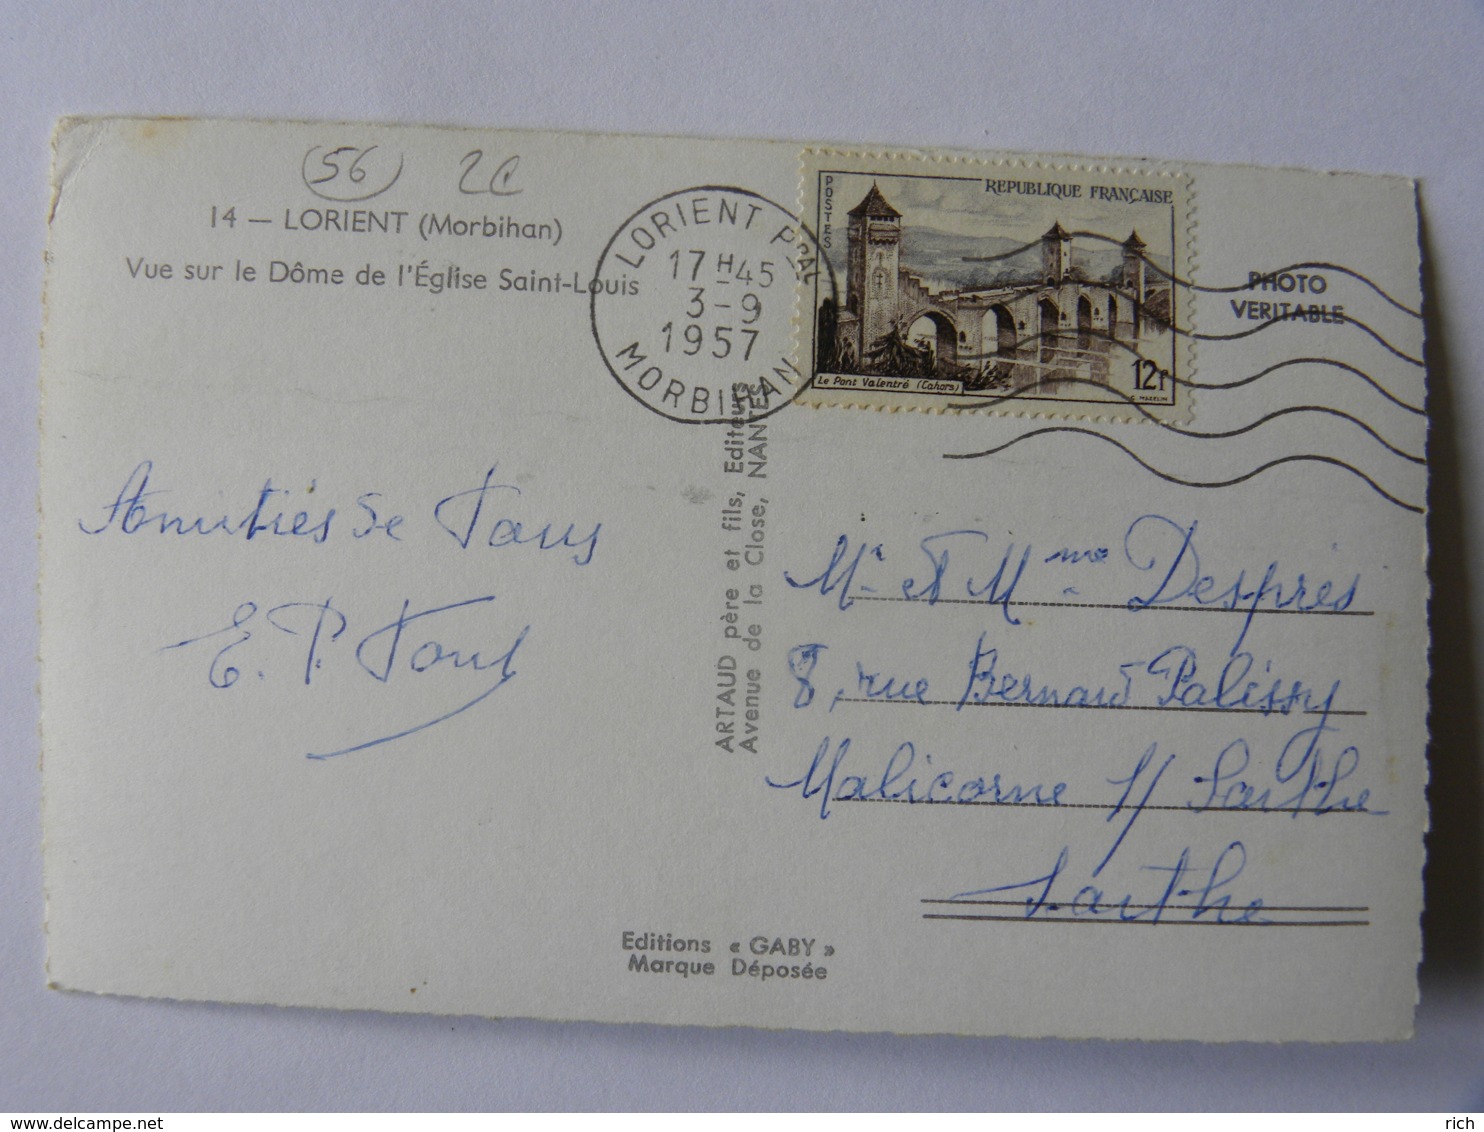 56 2€
14 — LORIENT (Morbihan)
Vue sur le Dôme de l'Église Saint-Louis
LORIENT PPAL
17 H 45
3 - 9
1957
MORBIHAN
POSTES
REPUBLIQUE FRANÇAISE
Le Pont Valentré (Cahors)
12F
PHOTO
VERITABLE
ARTAUD père et fils, Editeurs
Avenue de la Close, NANTES
Amitiés de Tous
E. P.
Mr et Mme Després
8, rue Bernard Palissy
Malicorne s/ Sarthe
Sarthe
Editions « GABY »
Marque Déposée
www.delcampe.net
rich